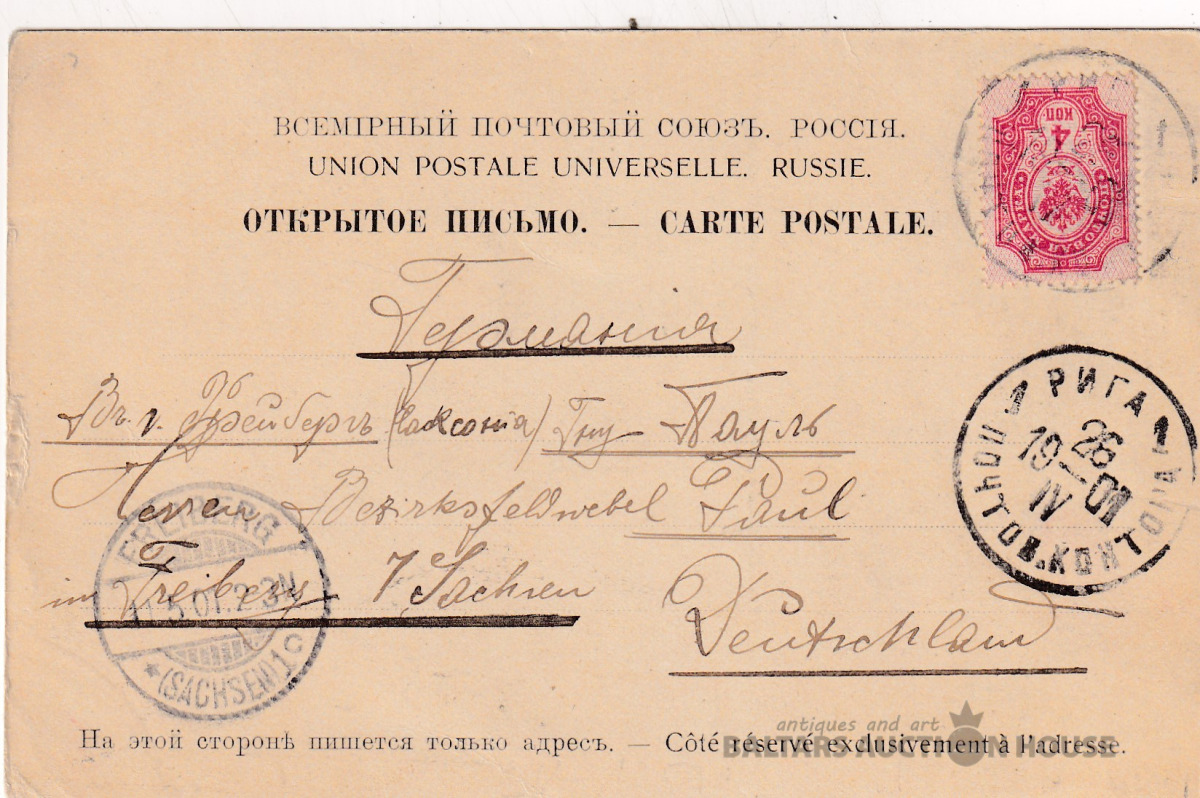 ВСЕМІРНЫЙ ПОЧТОВЫЙ СОЮЗЪ. РОССІЯ.
UNION POSTALE UNIVERSELLE. RUSSIE.
ОТКРЫТОЕ ПИСЬМО. — CARTE POSTALE.
4 КОП
ПОЧТОВАЯ МАРКА
Германія
Въ г. Фрейбергъ (Саксонія) Гну Пауль
РИГА
26
19 01
IV
ПОЧТОВ. КОНТОРА
1 1
Herrn Bezirksfeldwebel Paul
im Freiberg / Sachsen
Deutschland
FREIBERG
1.5.01. 2-3N
* (SACHSEN) 1c
На этой сторонѣ пишется только адресъ. — Côté réservé exclusivement à l'adresse.
antiques and art
BALTARS AUCTION HOUSE